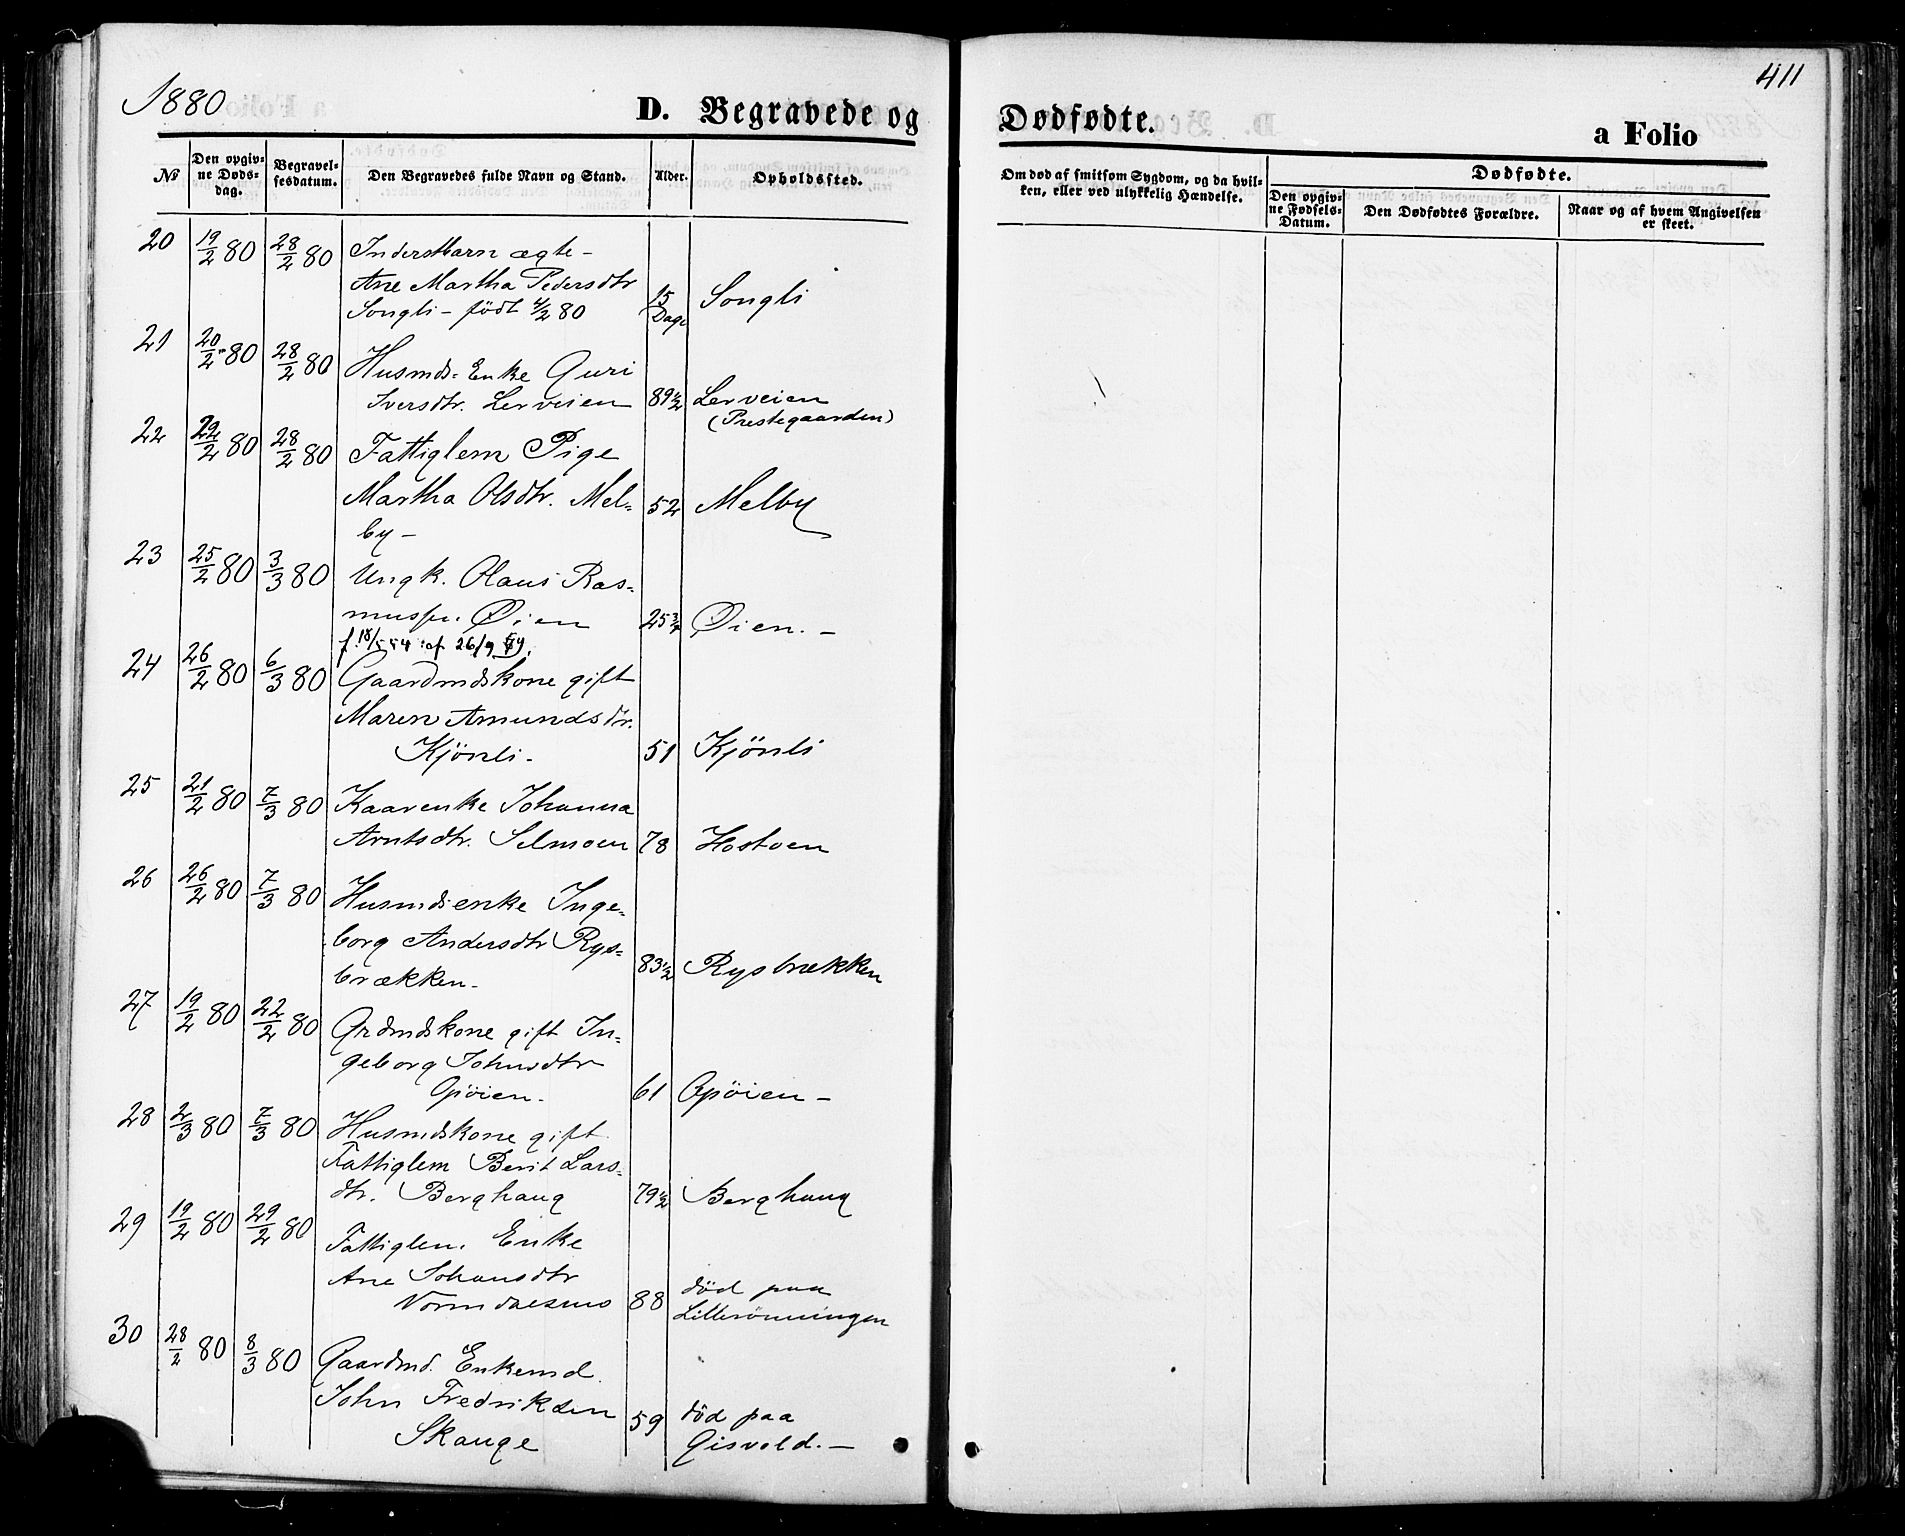 1880
D. Begravede og
№
Den opgiv-
ne Døds-
dag.
Begravel-
sesdatum.
Den Begravedes fulde Navn og Stand.
Alder.
Opholdssted.
20 19/2 80 28/2 80 Inderstbarn ægte -
Ane Martha Pedersdtr
Songli - født 4/2 80 15 Dage Songli
21 20/2 80 28/2 80 Husmds. Enke Guri
Iversdtr. Lerveien 89 1/2 Lerveien
(Prestegaarden)
22 22/2 80 28/2 80 Fattiglem Pige
Martha Olsdtr. Mel- 52 Melby
by -
23 25/2 80 3/3 80 Ungk. Olaus Ras-
mussen. Øien 25 3/4 Øien. -
f. 18/5 54
24 26/2 80 6/3 80 Gaardmdskone gift
Maren Amundsdtr.
Kjönli. 51 Kjönli
25 21/2 80 7/3 80 Kaarenke Johanna
Arntsdtr. Selmoen 78 Hostoen
26 26/2 80 7/3 80 Husmdsenke Inge-
borg Andersdtr Rys-
brækken. 83 1/2 Rysbrækken
27 19/2 80 22/2 80 Grdmdskone gift In-
geborg Johnsdtr
Gjöien. 61 Gjöien -
28 2/3 80 7/3 80 Husmdskone gift
Fattiglem Berit Lars-
dtr. Berghaug 79 1/2 Berghaug
29 19/2 80 29/2 80 Fattiglem. Enke
Ane Johansdtr
88 död paa
Lillerönningen
30 28/2 80 8/3 80 Gaardmd. Enkemd.
John Fredriksen
Skauge 59 död paa
Gisvold. -
411
Dødfødte.
a Folio
Om død af smitsom Sygdom, og da hvil-
ken, eller ved ulykkelig Hændelse.
Dødfødte.
Den opgiv-
ne Fødsels-
Datum.
Den Dødfødtes Forældre.
Naar og af hvem Angivelsen
er skeet.